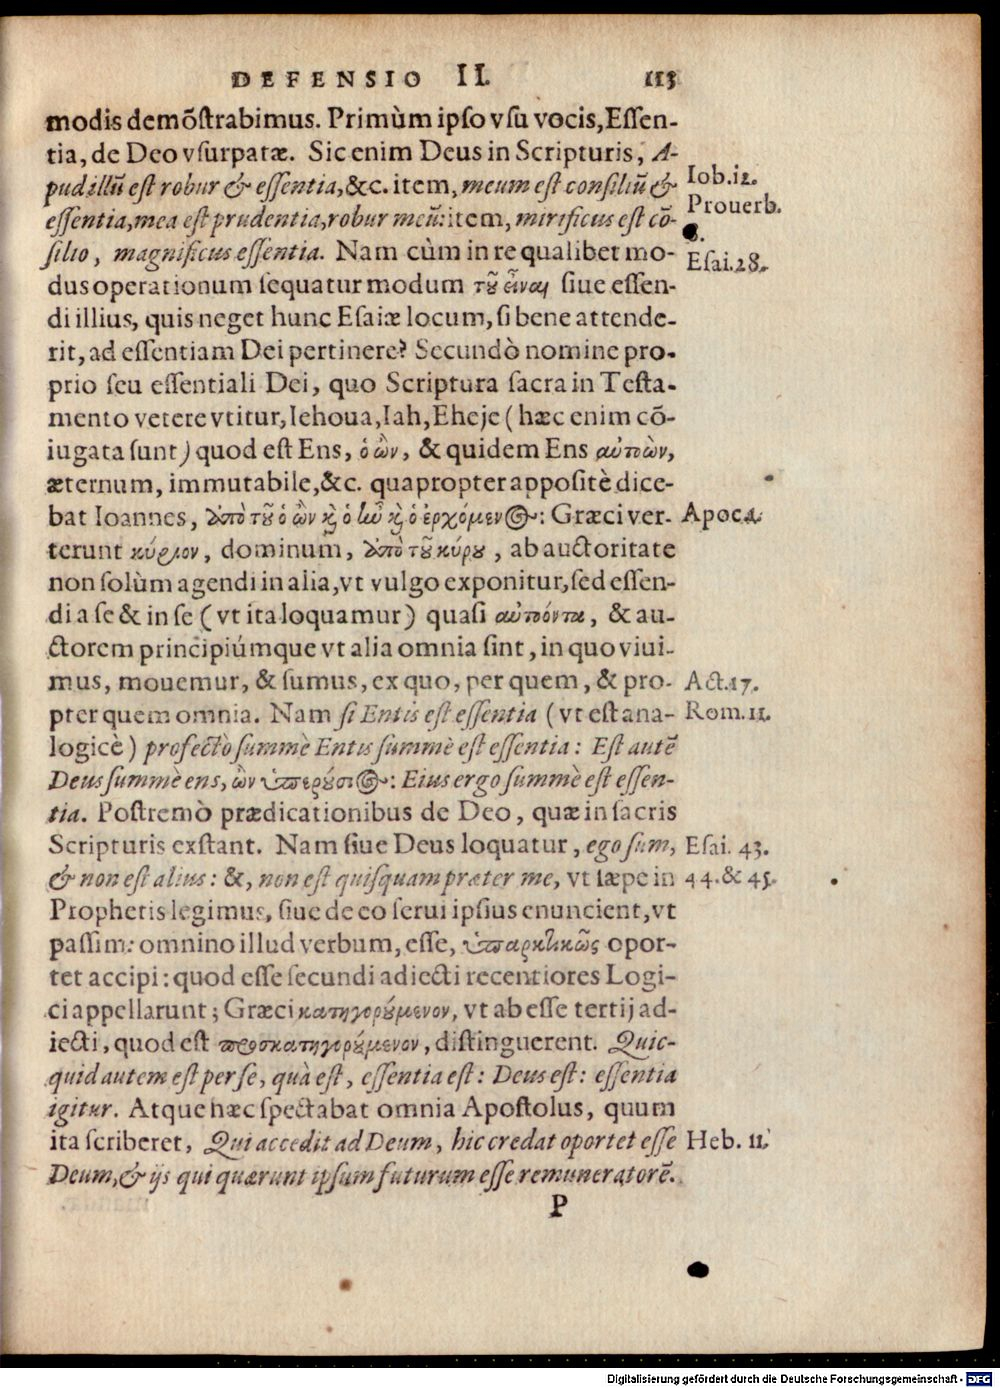 DEFENSIO II. 113
modis demõstrabimus. Primùm ipso vsu vocis, Essen-
tia, de Deo vsurpatæ. Sic enim Deus in Scripturis, A-
pud illũ est robur & essentia, &c. item, meum est consiliũ &
essentia, mea est prudentia, robur meũ: item, mirificus est cõ-
silio, magnificus essentia. Nam cùm in re qualibet mo-
dus operationum sequatur modum τοῦ εἶναι siue essen-
di illius, quis neget hunc Esaiæ locum, si bene attende-
rit, ad essentiam Dei pertinere? Secundò nomine pro-
prio seu essentiali Dei, quo Scriptura sacra in Testa-
mento vetere vtitur, Iehoua, Iah, Eheje (hæc enim cõ-
iugata sunt) quod est Ens, ὁ ὢν, & quidem Ens αὐτοὼν,
æternum, immutabile, &c. quapropter appositè dice-
bat Ioannes, ἀπὸ τοῦ ὁ ὢν καὶ ὁ ἦν καὶ ὁ ἐρχόμενος: Græci ver-
terunt κύριον, dominum, ἀπὸ τοῦ κύρου, ab auctoritate
non solùm agendi in alia, vt vulgo exponitur, sed essen-
di a se & in se (vt ita loquamur) quasi αὐτοόντα, & au-
ctorem principiúmque vt alia omnia sint, in quo viui-
mus, mouemur, & sumus, ex quo, per quem, & pro-
pter quem omnia. Nam si Entis est essentia (vt est ana-
logicè) profectò summè Entis summè est essentia: Est autẽ
Deus summè ens, ὢν ὑπερούσιος: Eius ergo summè est essen-
tia. Postremò prædicationibus de Deo, quæ in sacris
Scripturis exstant. Nam siue Deus loquatur, ego sum,
& non est alius: &, non est quisquam præter me, vt sæpe in
Prophetis legimus, siue de eo serui ipsius enuncient, vt
passim: omnino illud verbum, esse, ὑπαρκτικῶς opor-
tet accipi: quod esse secundi adiecti recentiores Logi-
ci appellarunt; Græci κατηγορούμενον, vt ab esse tertij ad-
iecti, quod est προσκατηγορούμενον, distinguerent. Quic-
quid autem est per se, quà est, essentia est: Deus est: essentia
igitur. Atque hæc spectabat omnia Apostolus, quum
ita scriberet, Qui accedit ad Deum, hic credat oportet esse
Deum, & ijs qui quærunt ipsum futurum esse remuneratorẽ.
P
Iob.12.
Prouerb.
8.
Esai.28.
Apoc.1.
Act.17.
Rom.11.
Esai. 43.
44. & 45.
Heb. 11.
Digitalisierung gefördert durch die Deutsche Forschungsgemeinschaft - DFG